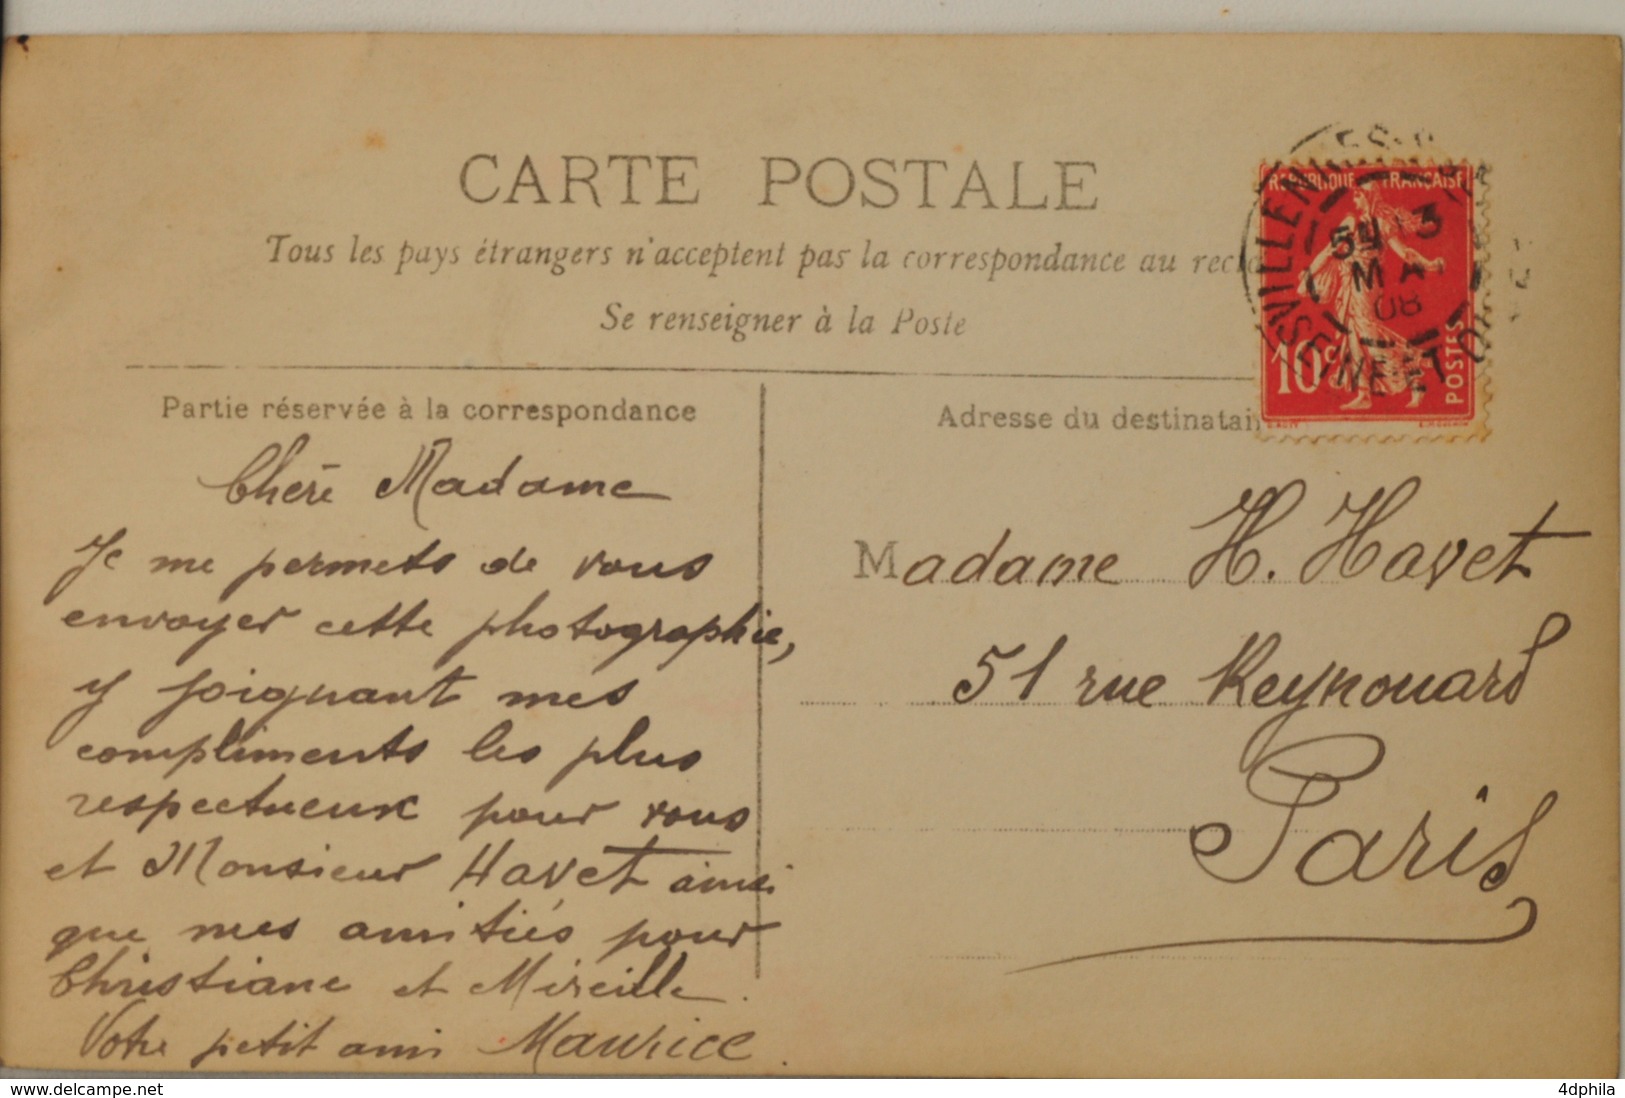 CARTE POSTALE
Tous les pays étrangers n'acceptent pas la correspondance au recto
Se renseigner à la Poste
REPUBLIQUE FRANÇAISE
10c POSTES
VILLEN
5H 13
MA
08
SEINE-ET-O
Partie réservée à la correspondance
Chère Madame
Je me permets de vous
envoyer cette photographie,
y joignant mes
compliments les plus
respectueux pour vous
et Monsieur Havet ainsi
que mes amitiés pour
Christiane et Mireille.
Votre petit ami Maurice.
Adresse du destinatair
Madame H. Havet
51 rue Reynouard
Paris
delcampe.net
4dphila